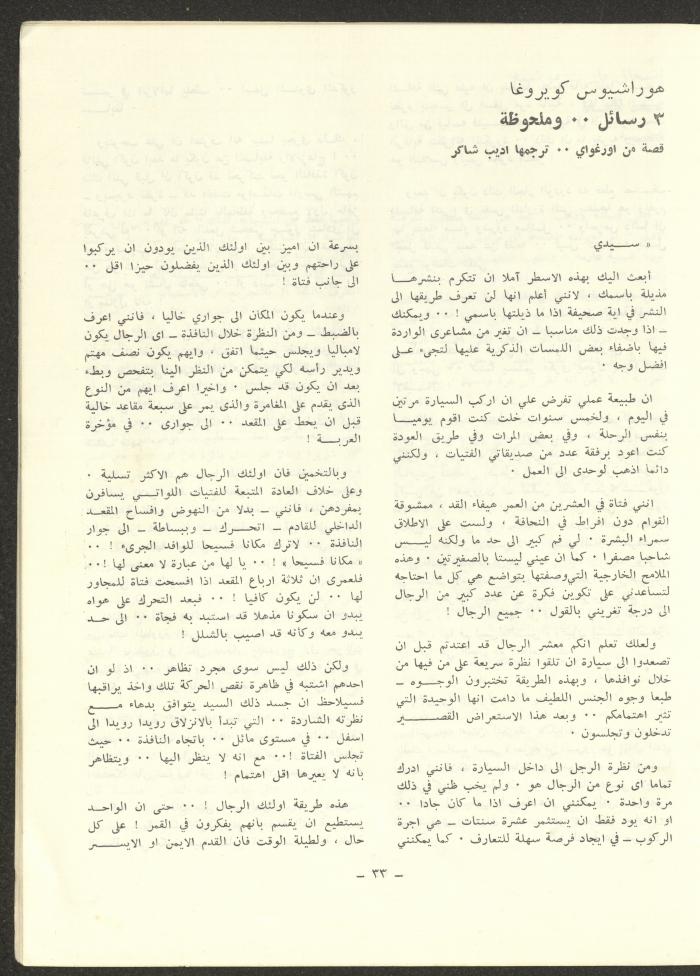 هوراشيوس كويروغا
٣ رسائل ٠٠ وملحوظة
قصة من اورغواي ٠٠ ترجمها اديب شاكر
« ســـيدي
أبعث اليك بهذه الاسطر آملا ان تتكرم بنشرهـــا
مذيلة باسمك ، لانني أعلم انها لن تعرف طريقها الى
النشر في اية صحيفة اذا ما ذيلتها باسمي ! ٠٠ ويمكنك
ــ اذا وجدت ذلك مناسبا ــ ان تغير من مشاعرى الواردة
فيها باضفاء بعض اللمسات الذكرية عليها لتجىء علــى
افضل وجه ٠
ان طبيعة عملي تفرض علي ان اركب السيارة مرتين
في اليوم ، ولخمس سنوات خلت كنت اقوم يوميـــا
بنفس الرحلة ، وفي بعض المرات وفي طريق العودة
كنت اعود برفقة عدد من صديقاتي الفتيات ، ولكنني
دائما اذهب لوحدى الى العمل ٠
انني فتاة في العشرين من العمر هيفاء القد ، ممشوقة
القوام دون افراط في النحافة ، ولست على الاطلاق
سمراء البشرة ٠ لي فم كبير الى حد ما ولكنه ليـــس
شاحبا مصفرا ٠ كما ان عيني ليستا بالصغيرتين ٠ وهذه
الملامح الخارجية التي وصفتها بتواضع هي كل ما احتاجه
لتساعدني على تكوين فكرة عن عدد كبير من الرجال
الى درجة تغريني بالقول ٠٠ جميع الرجال !
ولعلك تعلم انكم معشر الرجال قد اعتدتم قبل ان
تصعدوا الى سيارة ان تلقوا نظرة سريعة على من فيها من
خلال نوافذها ، وبهذه الطريقة تختبرون الوجـــوه ــ
طبعا وجوه الجنس اللطيف ما دامت انها الوحيدة التي
تثير اهتمامكم ٠٠ وبعد هذا الاستعراض القصـــير
تدخلون وتجلسون ٠
ومن نظرة الرجل الى داخل السيارة ، فانني ادرك
تماما اى نوع من الرجال هو ٠ ولم يخب ظني في ذلك
مرة واحدة ٠ يمكنني ان اعرف اذا ما كان جادا ٠٠
او انه يود فقط ان يستثمر عشرة سنتات ــ هي اجرة
الركوب ــ في ايجاد فرصة سهلة للتعارف ٠ كما يمكنني
بسرعة ان اميز بين اولئك الذين يودون ان يركبوا
على راحتهم وبين اولئك الذين يفضلون حيزا اقل ٠٠
الى جانب فتاة !
وعندما يكون المكان الى جواري خاليا ، فانني اعرف
بالضبط ــ ومن النظرة خلال النافذة ــ اى الرجال يكون
لامباليا ويجلس حيثما اتفق ، وايهم يكون نصف مهتم
ويدير رأسه لكي يتمكن من النظر الينا بتفحص وبطء
بعد ان يكون قد جلس ٠ واخيرا اعرف ايهم من النوع
الذى يقدم على المغامرة والذى يمر على سبعة مقاعد خالية
قبل ان يحط على المقعد ٠٠ الى جوارى ٠٠ في مؤخرة
العربـــة !
وبالتخمين فان اولئك الرجال هم الاكثر تسلية ٠
وعلى خلاف العادة المتبعة للفتيات اللواتـــي يسافرن
بمفردهن ، فانني ــ بدلا من النهوض وافساح المقعـد
الداخلي للقادم ــ اتحـــرك ــ وببساطة ــ الى جوار
النافذة ٠٠ لاترك مكانا فسيحا للوافد الجرىء ! ٠٠
« مكانا فسيحا » ! ٠٠ يا لها من عبارة لا معنى لها ! ٠٠
فلعمرى ان ثلاثة ارباع المقعد اذا افسحت فتاة للمجاور
لها ٠٠ لن يكون كافيا ! ٠٠ فبعد التحرك على هواه
يبدو ان سكونا مذهلا قد استبد به فجأة ٠٠ الى حـد
يبدو معه وكأنه قد اصيب بالشلل !
ولكن ذلك ليس سوى مجرد تظاهر ٠٠ اذ لو ان
احدهم اشتبه في ظاهرة نقص الحركة تلك واخذ يراقبها
فسيلاحظ ان جسد ذلك السيد يتوافق بدهاء مـــع
نظرته الشاردة ٠٠ التي تبدأ بالانزلاق رويدا رويدا الى
اسفل ٠٠ في مستوى مائل ٠٠ باتجاه النافذة ٠٠ حيث
تجلس الفتاة ! ٠٠ مع انه لا ينظر اليها ٠٠ ويتظاهر
بانه لا يعيرها اقل اهتمام !
هذه طريقة اولئك الرجال ! ٠٠ حتى ان الواحـد
يستطيع ان يقسم بانهم يفكرون في القمر ! على كل
حال ، ولطيلة الوقت فان القدم الايمن او الايســـر
ــ ٣٣ ــ